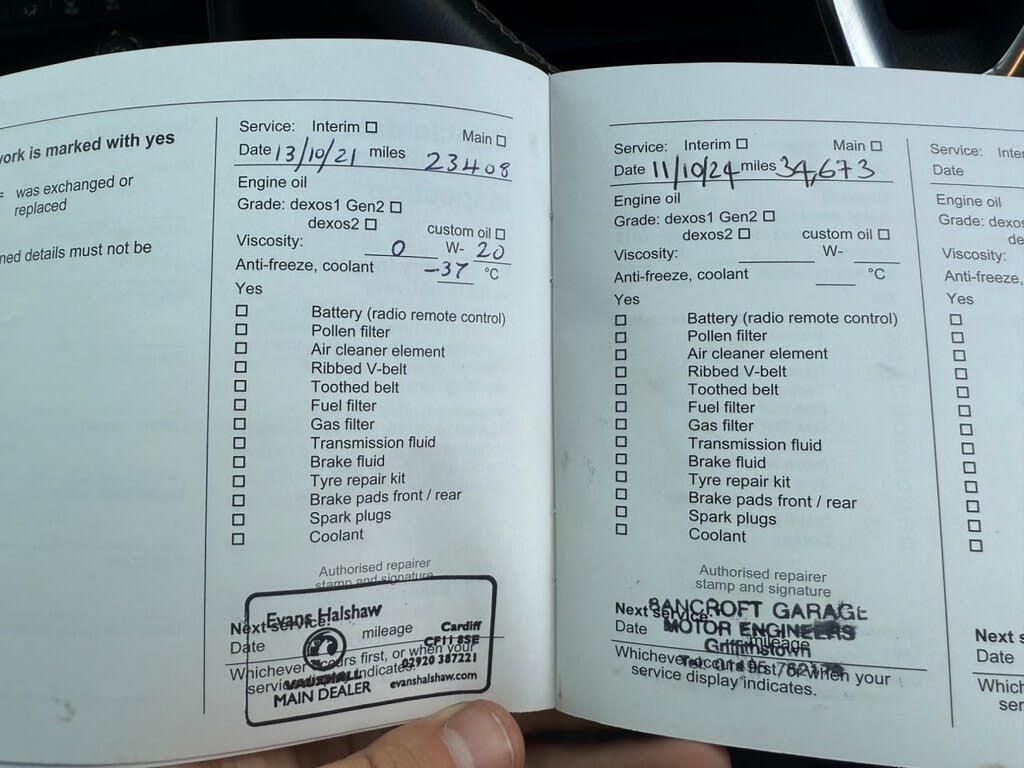 ork is marked with yes
= was exchanged or
replaced
ned details must not be
Service: Interim Main
Date 13/10/21 miles 23408
Engine oil
Grade: dexos1 Gen2
dexos2 custom oil
Viscosity: 0 W- 20
Anti-freeze, coolant -37 °C
Yes
Battery (radio remote control)
Pollen filter
Air cleaner element
Ribbed V-belt
Toothed belt
Fuel filter
Gas filter
Transmission fluid
Brake fluid
Tyre repair kit
Brake pads front / rear
Spark plugs
Coolant
Authorised repairer
stamp and signature
Next service:
Date mileage
Whichever occurs first, or when your
service display indicates.
Evans Halshaw
Cardiff
CF11 8SE
02920 387221
VAUXHALL
MAIN DEALER evanshalshaw.com
Service: Interim Main
Date 11/10/24 miles 34,673
Engine oil
Grade: dexos1 Gen2
dexos2 custom oil
Viscosity: W-
Anti-freeze, coolant °C
Yes
Battery (radio remote control)
Pollen filter
Air cleaner element
Ribbed V-belt
Toothed belt
Fuel filter
Gas filter
Transmission fluid
Brake fluid
Tyre repair kit
Brake pads front / rear
Spark plugs
Coolant
Authorised repairer
stamp and signature
Next service:
Date mileage
Whichever occurs first, or when your
service display indicates.
BANCROFT GARAGE
MOTOR ENGINEERS
Griffithstown
Service: Inter
Date
Engine oil
Grade: dexos
de
Viscosity:
Anti-freeze,
Yes
Next s
Date
Which
ser